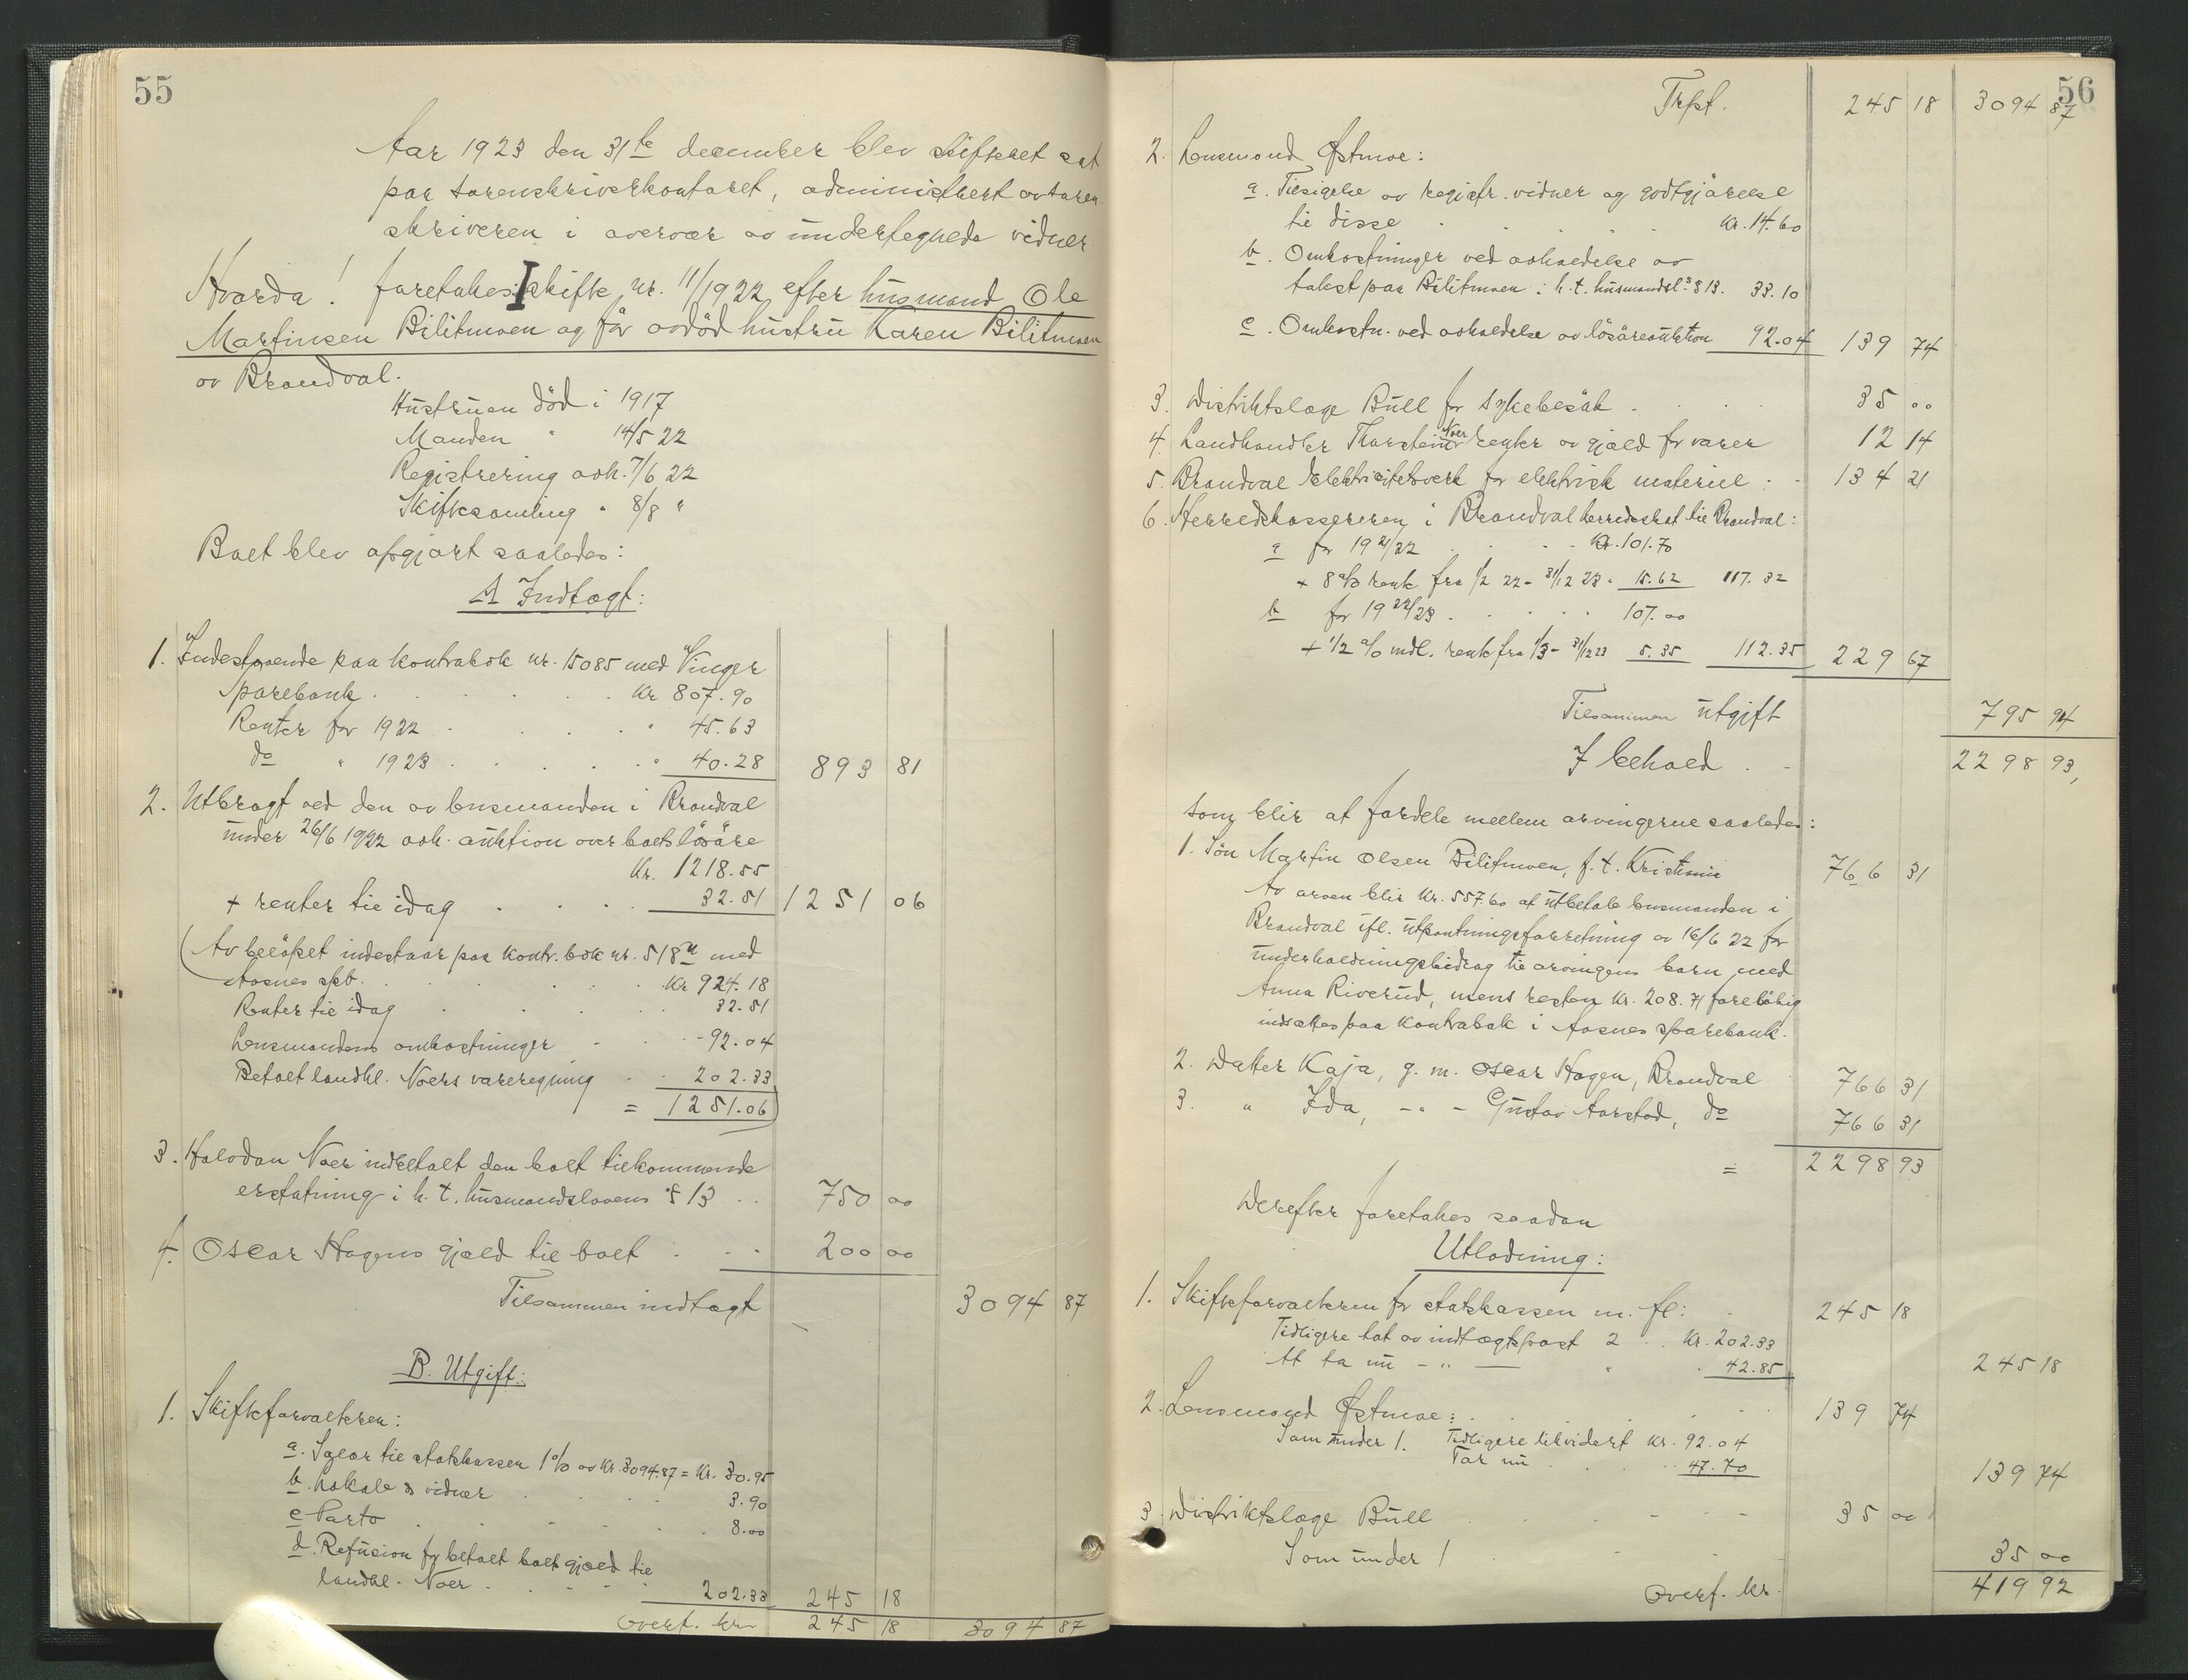 55
Aar 1923 den 31te december blev skifteret sat
paa sorenskriverkontoret, administrert av soren-
skriveren i overvær av undertegnede vidner
Hvorda! foretakes: I skifte nr. 11/1922 efter husmand Ole
Martinsen Bilitmoen og før avdød hustru Karen Bilitmoen
av Brandval.
Hustruen død i 1917
Manden " 14/5 22
Registrering avh. 7/6 22
Skiftesamling " 8/8 "
Boet blev opgjort saaledes:
A Indtægt:
1. Indestaaende paa kontrabok nr. 15085 med Vinger
Sparebank . . . Kr 807.90
Renter for 1922 . . . " 45.63
do " 1923 . . . " 40.28 893 81
2. Utbragt ved den av lensmanden i Brandval
under 26/6 1922 avh. auktion over boets løsøre
Kr. 1218.55
+ renter til idag . . . 32.51 1251 06
(Av beløpet indestaar paa kontr.bok nr. 518 med
Aasnes spb. . . . Kr 924.18
Renter til idag . . . 32.51
Lensmandens omkostninger . . . 92.04
Betalt landhl. Noers vareregning . . 202.33
= 1251.06)
3. Halvdan Noer indbetalt den boet tilkommende
erstatning i h. t. husmandslovens § 13 . . 750 00
4. Oscar Hagens gjæld til boet . . . 200 00
Tilsammen indtægt 3094 87
B. Utgift:
1. Skifteforvalteren:
a. Salær til statskassen 1 % av Kr. 3094.87 = Kr. 30.95
b. Lokale & vidner . . . 3.90
c Porto . . . 8.00
d. Refusion for betalt boets gjæld til
landhl. Noer . . . 202.33 245 18
Overf. kr. 245 18 3094 87
56
Trpt. 245 18 3094 87
2. Lensmand Østmoe:
a. Tilsigelse av registr. vidner og godtgjørelse
til disse . . . Kr. 14.60
b. Omkostninger ved avholdelse av
takst paa Bilitmoen i h. t. husmandsl.s § 13. 33.10
c. Omkostn. ved avholdelse av løsøreauktion 92.04 139 74
3. Distriktslæge Bull for sykebesøk . . . 35 00
4. Landhandler Thorstein Noer renter av gjæld for varer 12 14
5. Brandval Elektricitetsverk for elektrisk materiel . . 134 21
6. Herredskassereren i Brandval herredskat til Brandval:
a for 1921/22 . . . Kr. 101.70
+ 8 % rente fra 1/2 22 - 31/12 23 . 15.62 117.32
b for 1922/23 . . . 107.00
+ 1/2 % mdl. rente fra 1/3 - 31/12 23 5.35 112.35 229 67
Tilsammen utgift 795 94
I behold . . 2298 93,
som blir at fordele mellem arvingerne saaledes:
1. Søn Martin Olsen Bilitmoen, f. t. Kristiania 766 31
Av arven blir Kr. 557.60 at utbetale lensmanden i
Brandval ifl. utpantningsforretning av 16/6 22 for
underholdningsbidrag til arvingens barn med
Anna Riverud, mens resten Kr. 208.71 foreløbig
indsættes paa kontrabok i Aasnes sparebank.
2. Datter Kaja, g. m. Oscar Hagen, Brandval 766 31
3. " Ida, - " - Gustav Aarstad, do 766 31
= 2298 93
Derefter foretakes saadan
Utlodning:
1. Skifteforvalteren for statskassen m. fl: . 245 18
Tidligere tat av indtægtspost 2 . . Kr. 202.33
At ta nu - " - . 42.85 245 18
2. Lensmand Østmoe: . . . 139 74
Som under 1. Tidligere likvidert Kr. 92.04
Tar nu . . . 47.70 139 74
3. Distriktslæge Bull . . . 35 00
Som under 1 . . . 35 00
Overf. kr. 419 92